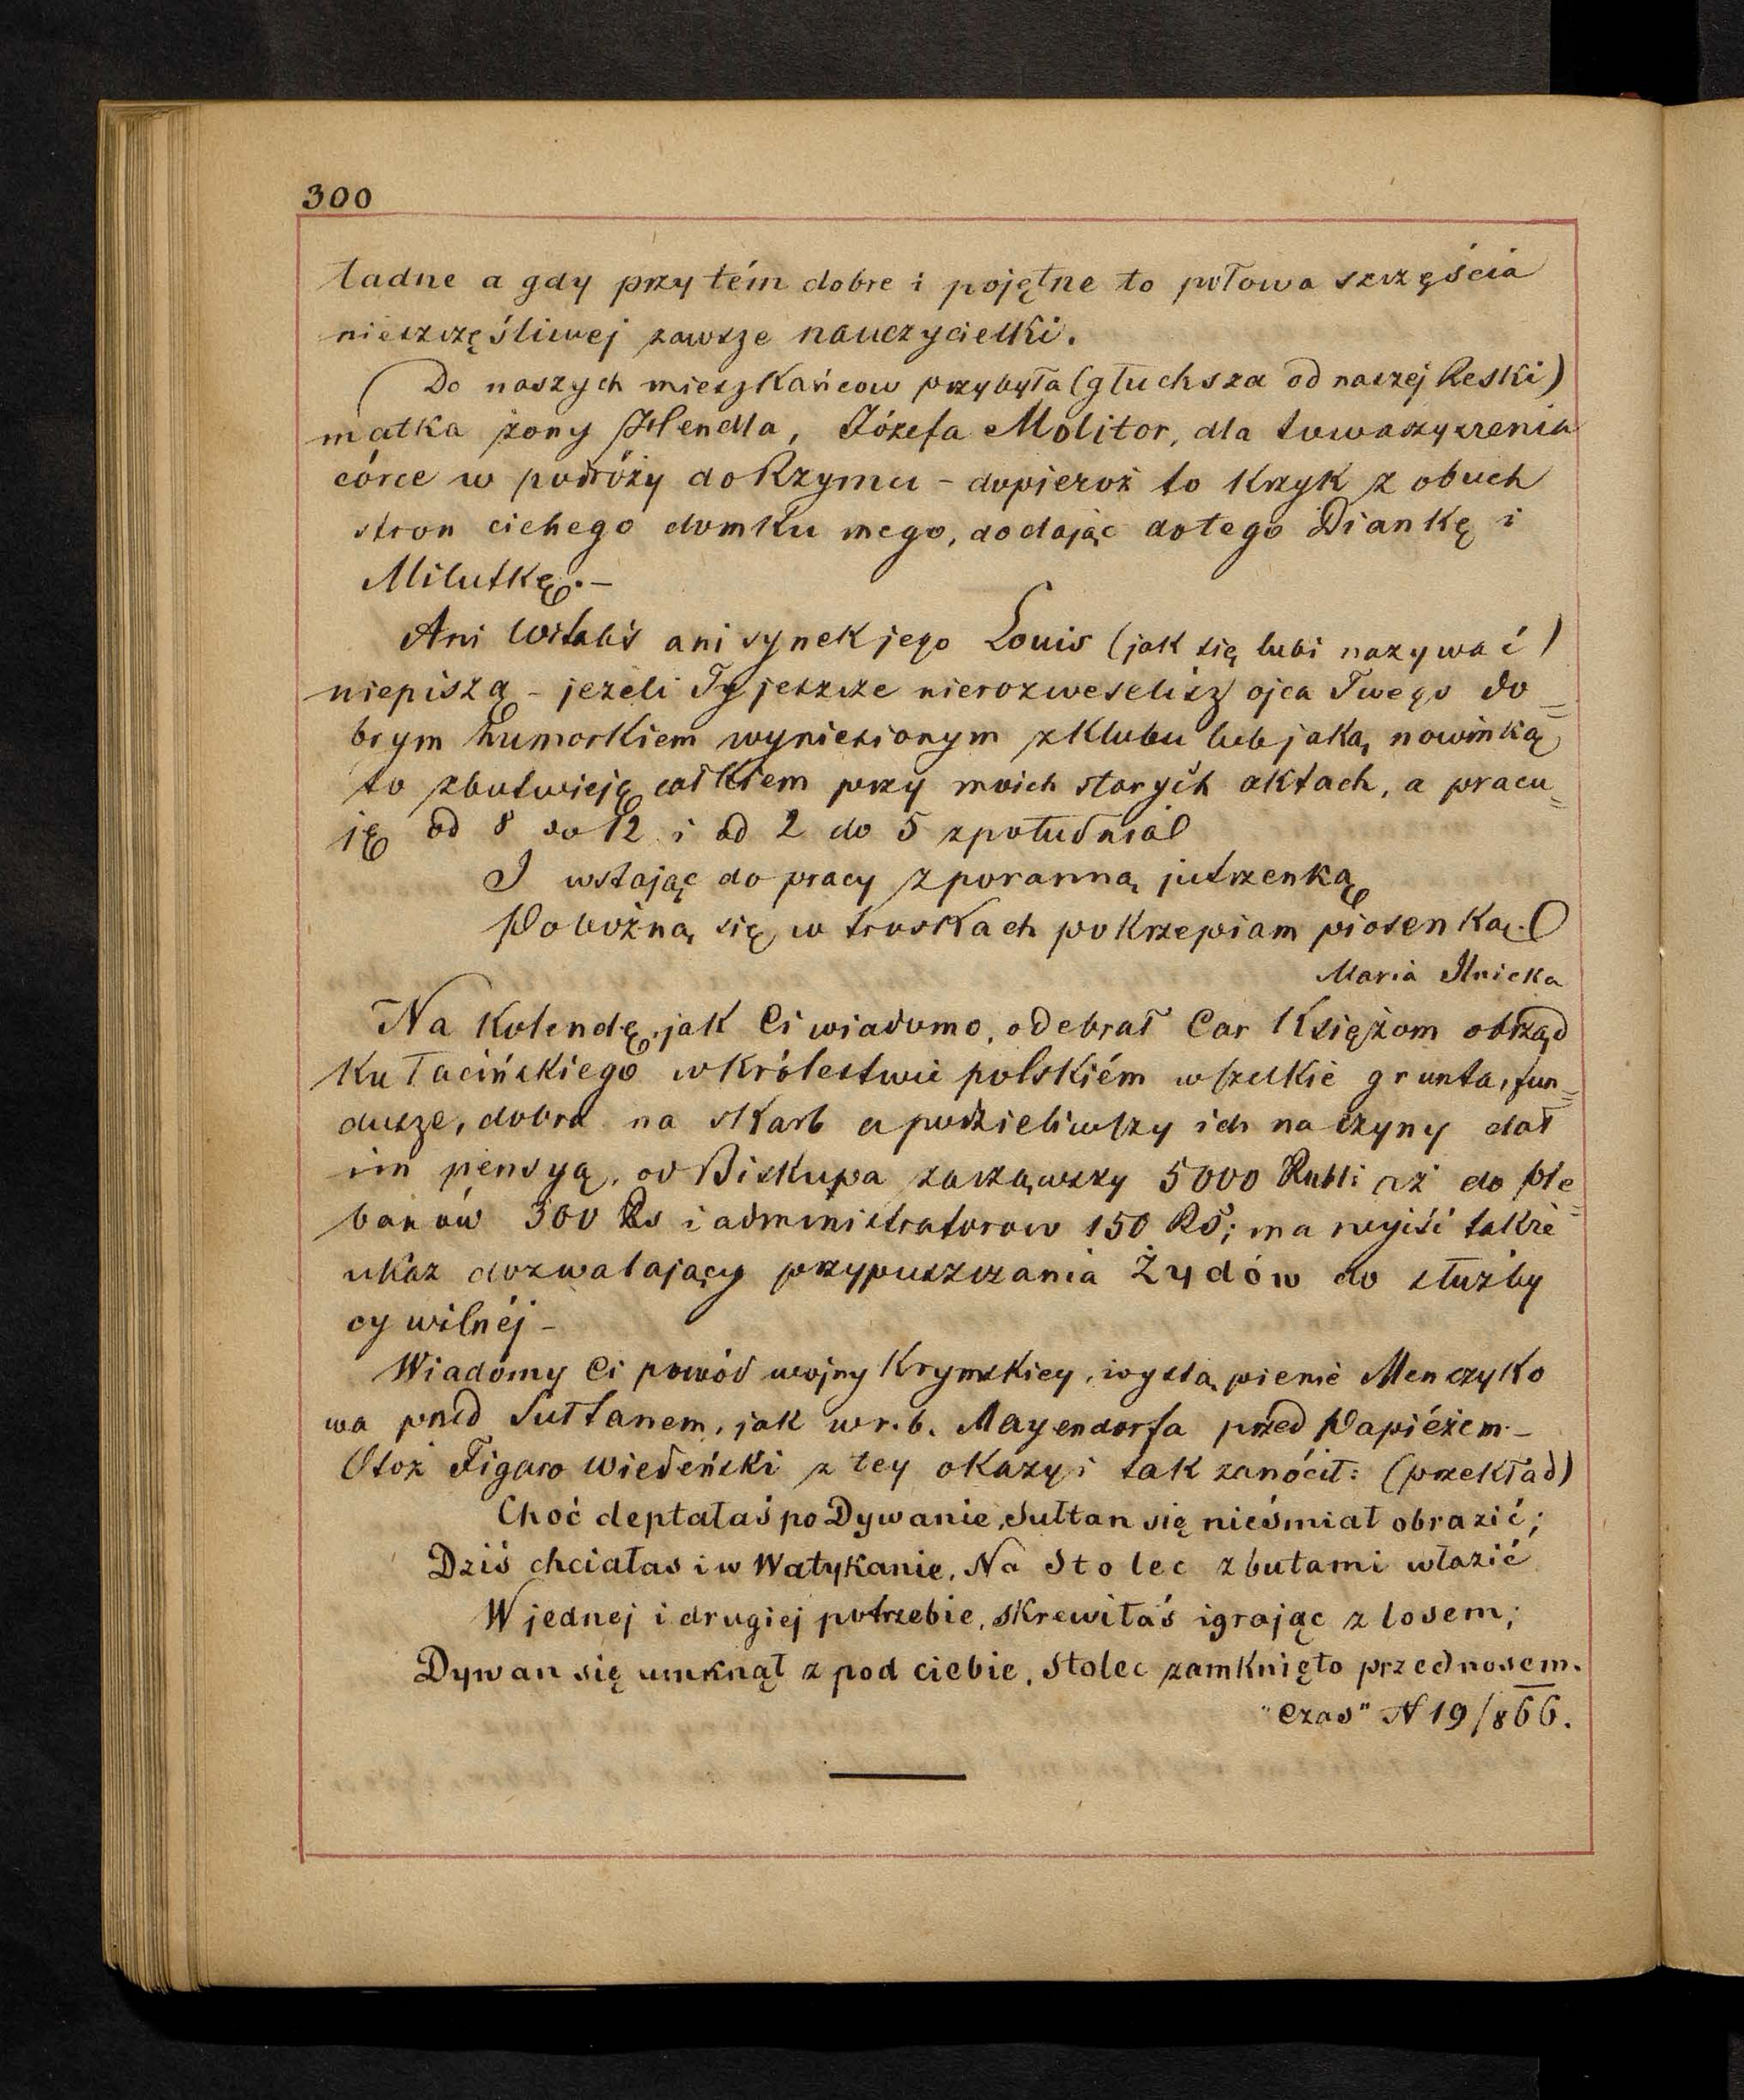 300
ładne a gdy przytém dobre i pojętne to połowa szczęścia
nieszczęśliwej zawsze nauczycielki.
( Do naszych mieszkańcow przybyła (głuchsza od naszej Reski)
matka żony Hendla, Józefa Molitor, dla towarzyszenia
córce w podróży do Rzymu – dopieroż to krzyk z obuch
stron cichego domku mego, dodając dotego Diankę i
Milutkę. –
Ani Witaliś ani synek jego Louis (jak się lubi nazywać)
niepiszą – jeżeli Ty jeszcze nierozweselisz ojca Twego do=
brym humorkiem wyniesionym z klubu lub jaką nowinką
to zbutwieję całkiem przy moich starych aktach, a pracu=
ję od 8 do 12 i od 2 do 5 zpołudnia
I wstając do pracy z poranną jutrzenką
Pobożną się w troskach pokrzepiam piosenką.
Maria Ilnicka
Na Kolendę, jak Ci wiadomo, odebrał Car Księżom obrząd
ku łacińskiego w Królestwie polskiém wszelkie grunta, fun=
dusze, dobra na skarb a podzieliwszy ich na czyny dał
im pensyą, od Biskupa zacząwszy 5000 Rubli aż do ple=
banów 300 Rs i administratorow 150 RS; ma wyjść także
ukaz dozwalający przypuszczania Żydów do służby
cywilnéj –
Wiadomy Ci powód wojny Krymskiey, wystąpienie Menczyko
wa przed Sułtanem, jak w r. b. Mayendorfa przed Papiéżem. –
Otoż Figaro wiedeński z tey okazyi tak zanócił: (przekład)
Choć deptałaś po Dywanie, Sułtan się nieśmiał obrazić;
Dziś chciałas i w Watykanie, Na Stolec z butami włazić
W jednej i drugiej potrzebie, skrewiłaś igrając z losem;
Dywan się umknął z pod ciebie, Stolec zamknięto przed nosem.
"Czas" N 19/866.